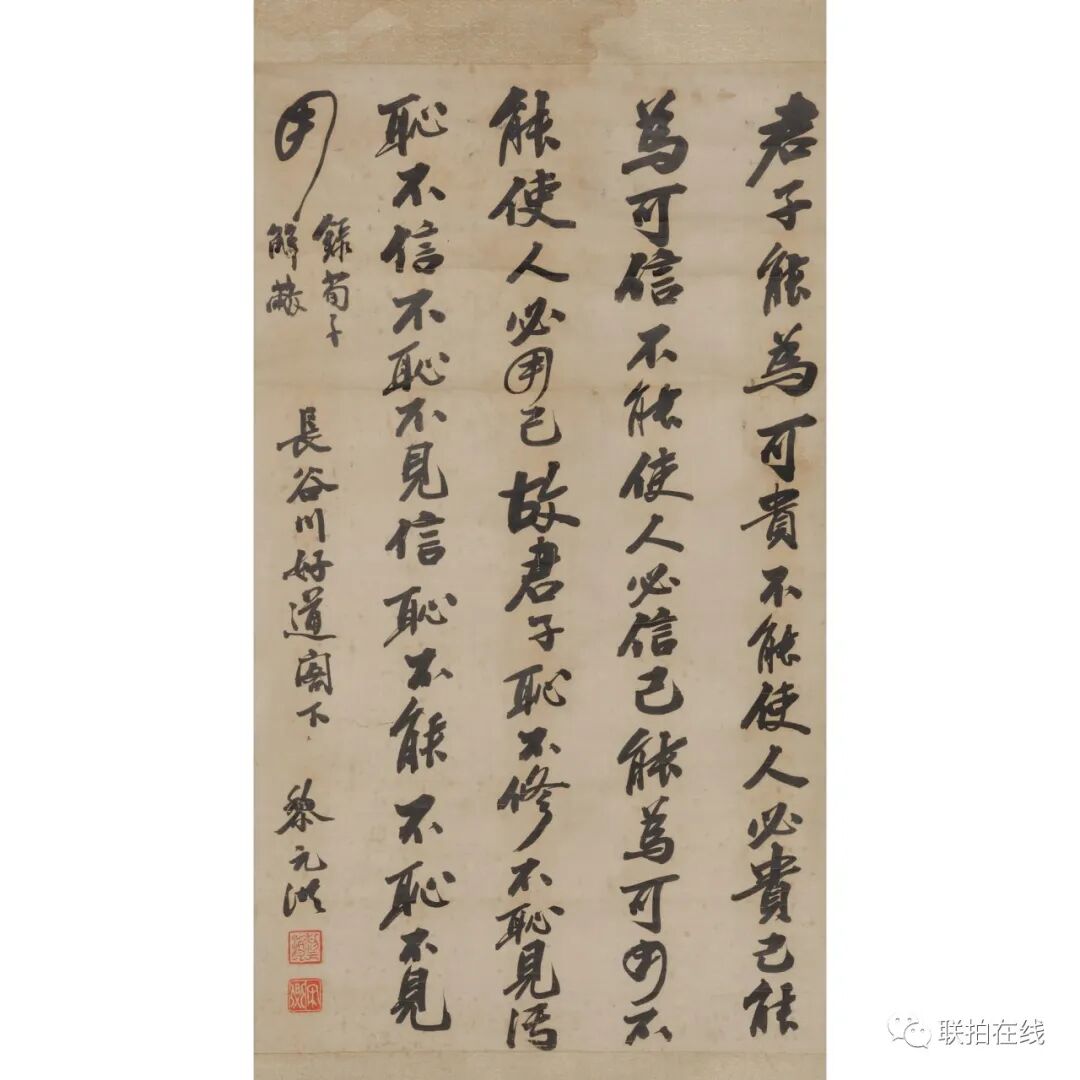 君子能為可貴不能使人必貴己能
為可信不能使人必信己能為可用不
能使人必用己故君子恥不修不恥見汚
恥不信不恥不見信恥不能不恥不見
用
錄荀子
解蔽
長谷川好道閣下
黎元洪
联拍在线